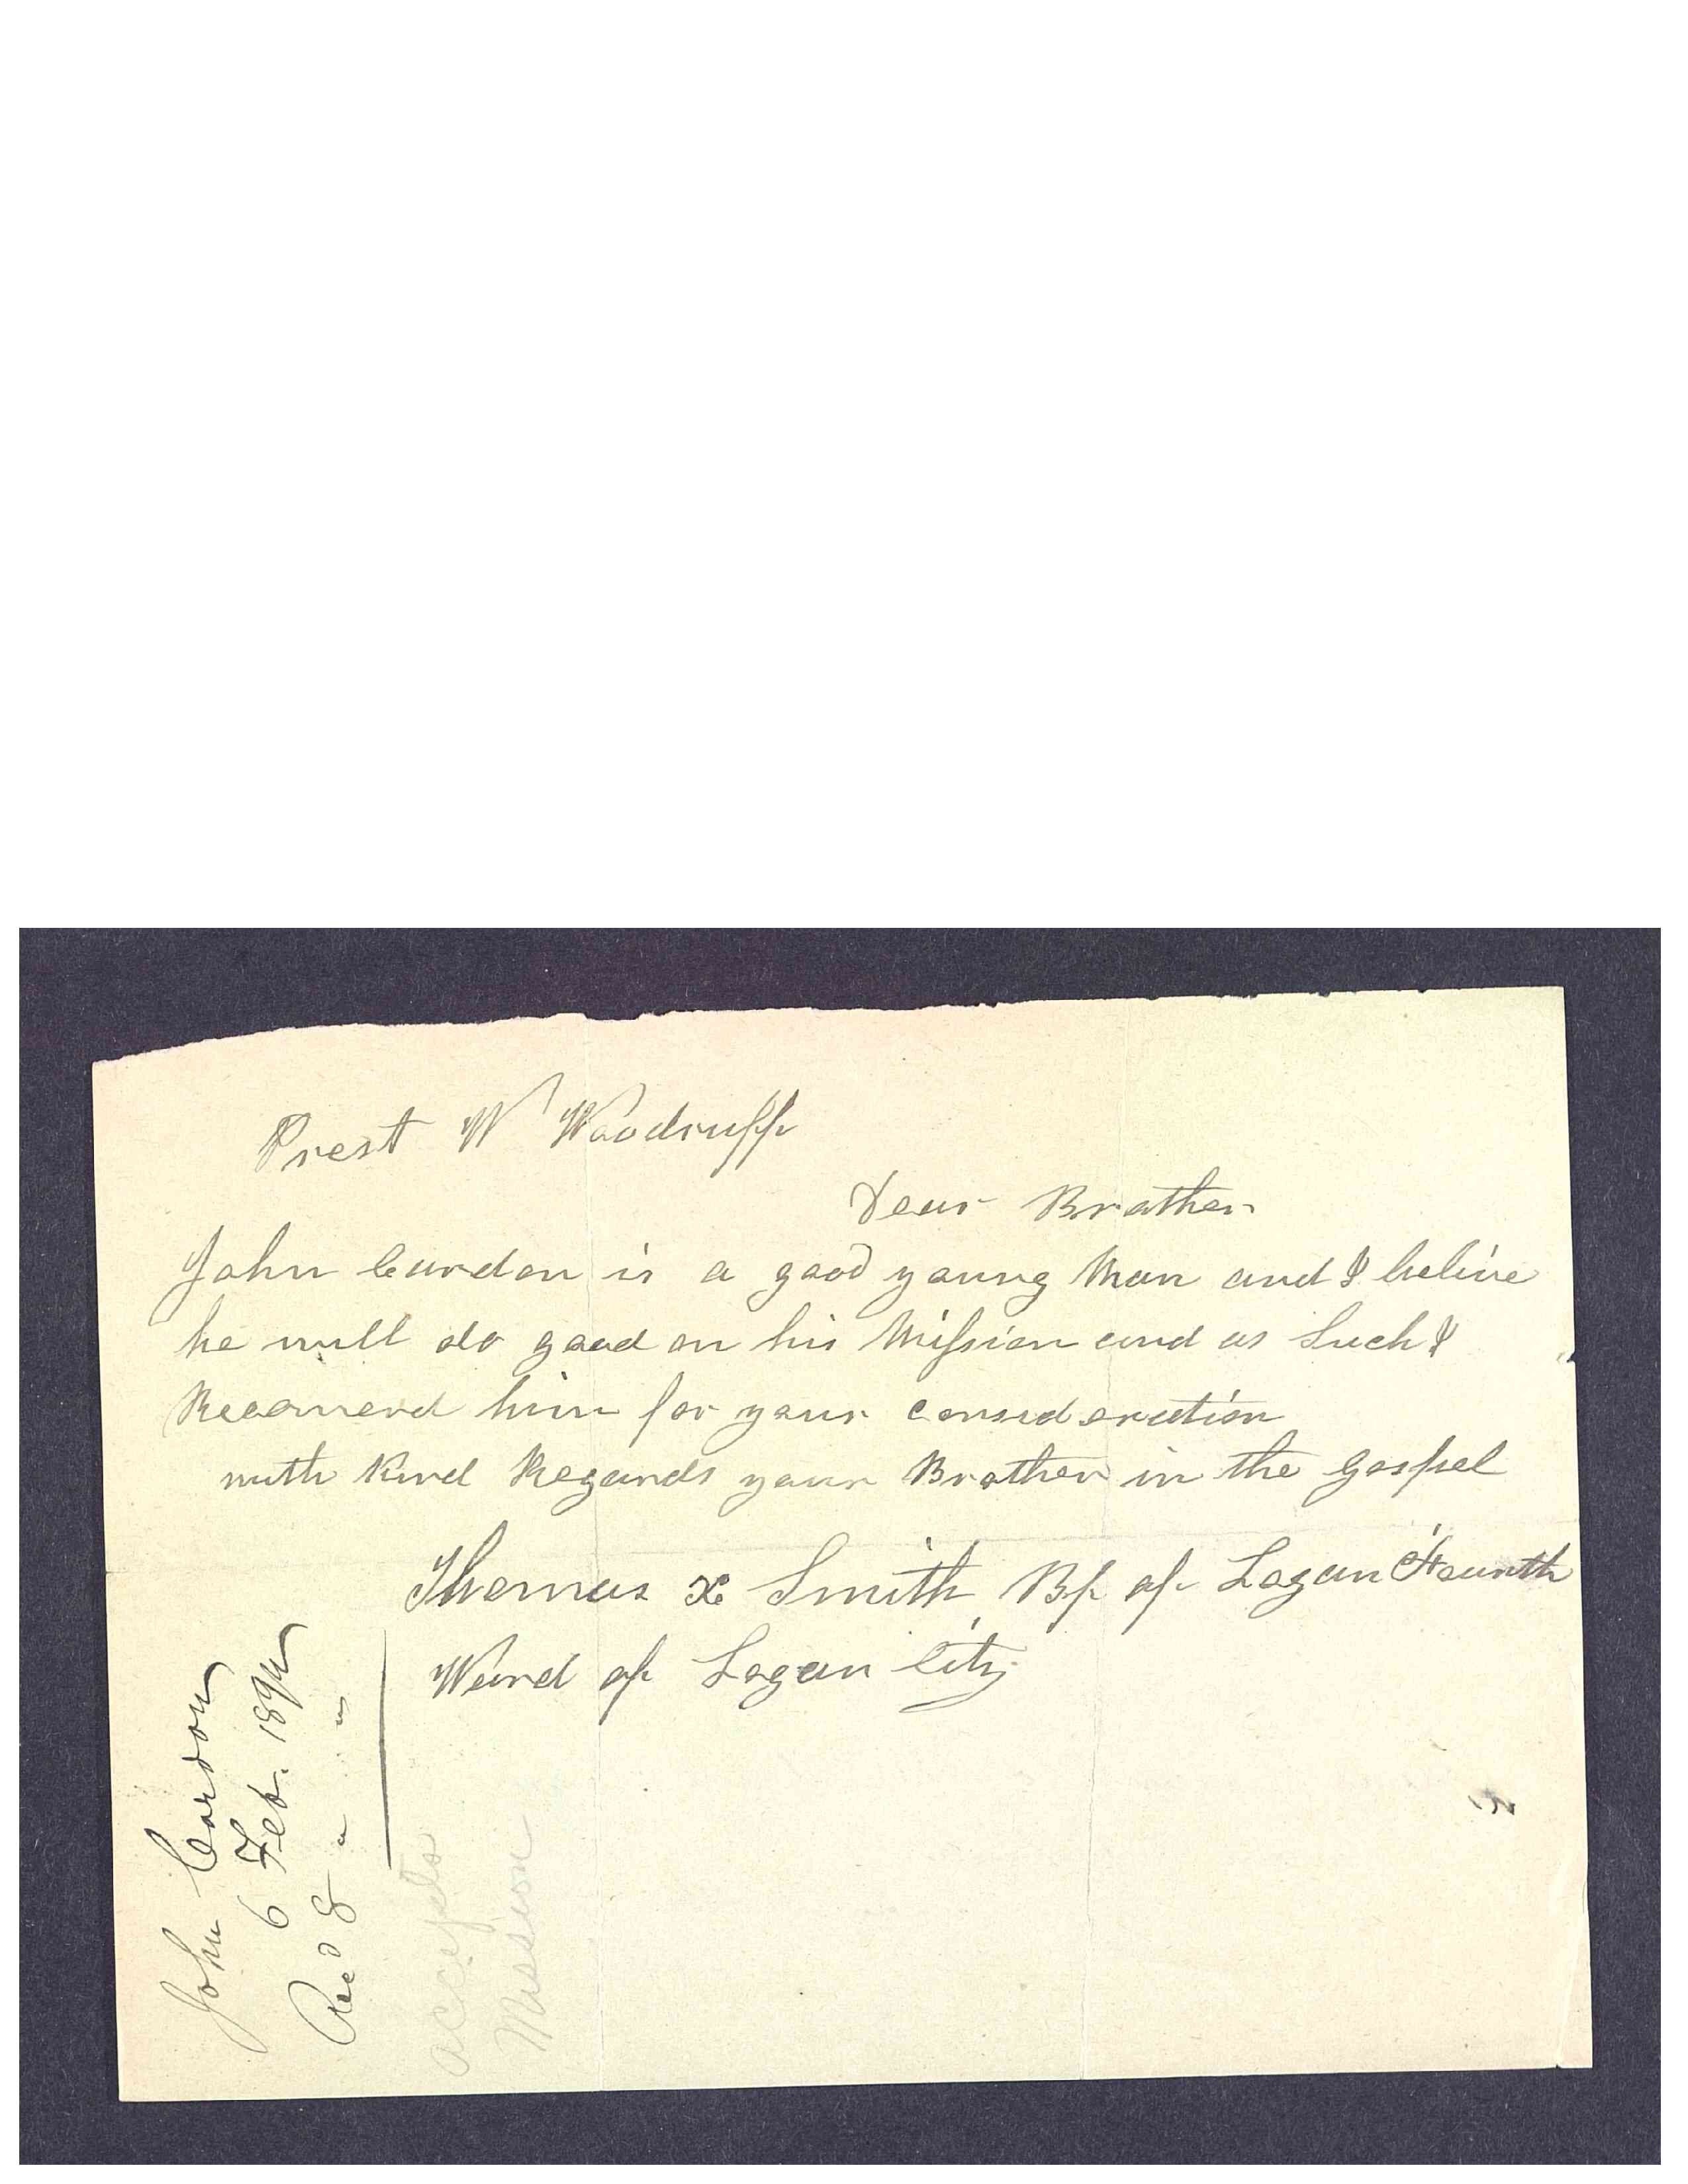 Prest W Woodruff
Dear Brother
John Cardon is a good young Man and I belive
he will do good on his Mission and as Such I
Recomend him for your consideration
with Kind Regards your Brother in the gospel
Thomas X Smith Bp of Logan Fourth
Ward of Logan City
John Cardon
6 Feb. 189
Recd 8 " "
accepts
Mission